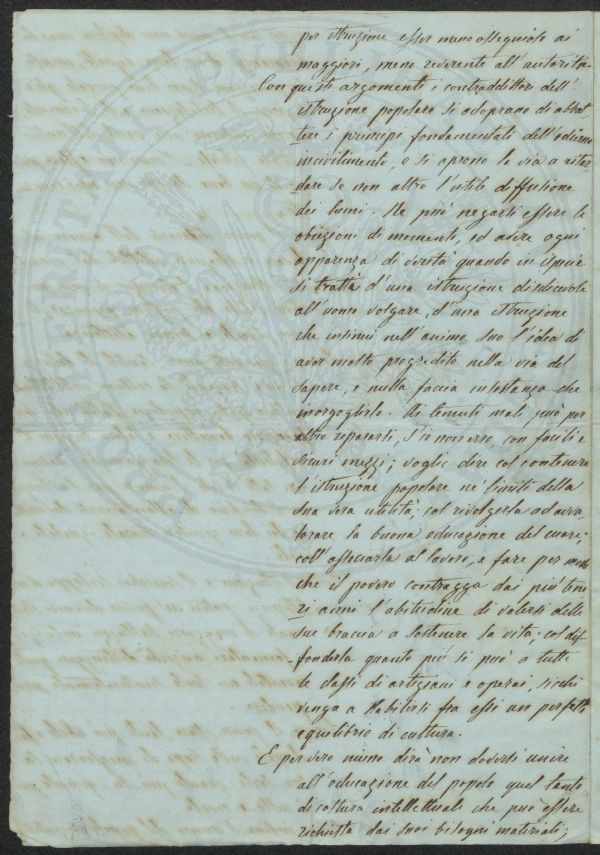 per istruzione esser meno ossequioso ai
maggiori, meno reverente all'autorità
Con questi argomenti i contraddittori dell'
istruzione popolare si adoprano di abbat
tere i principi fondamentali dell'odierno
incivilimento, o si aprono la via a ritar
dare se non altro l'utile diffusione
dei lumi. Ne può negarsi essere le
obiezioni di momento, ed avere ogni
apparenza di verità quando in ispecie
si tratta d'una istruzione disdicevole
all'uomo volgare, d'una istruzione
che insinui nell'animo suo l'idea di
aver molto progredito nella via del
sapere, e nulla faccia in sostanza che
inorgoglirlo. Ai temuti mali può per
altro ripararsi, s'io non erro, con facili e
sicuri mezzi; voglio dire col contenere
l'istruzione popolare ne' limiti della
sua vera utilità; col rivolgerla ad avva
lorare la buona educazione del cuore;
coll'associarla al lavoro, e fare per modo
che il povero contragga dai più tene
ri anni l'abitudine di valersi delle
sue braccia a sostenere la vita; col dif
fonderla quanto più si può a tutte
le classi di artigiani e operai, sicchè
venga a stabilirsi fra essi un perfetto
equilibrio di cultura.
E per vero niuno dirà non doversi unire
all'educazione del popolo quel tanto
di coltura intellettuale che può essere
richiesta dai suoi bisogni materiali;
PROSTERNITATI PUBLICAE